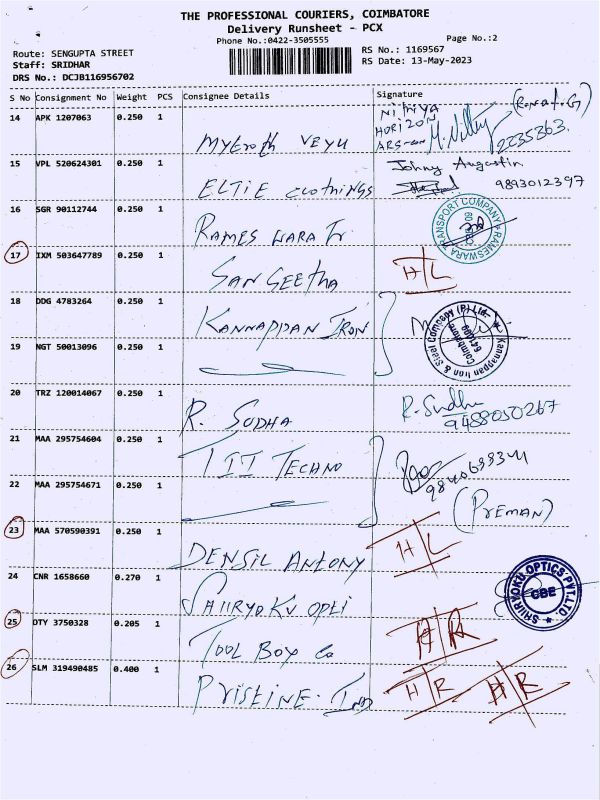 THE PROFESSIONAL COURIERS, COIMBATORE
Delivery Runsheet - PCX
Phone No.:0422-3505555
Page No.:2
Route: SENGUPTA STREET
RS No.: 1169567
Staff: SRIDHAR
RS Date: 13-May-2023
DRS No.: DCJB116956702
S No Consignment No Weight PCS Consignee Details Signature
14 APK 1207063 0.250 1 VEYU NITHYA HORIZON 2235363.
15 VPL 520624301 0.250 1 ELTIE CLOTHINGS Johny Augustin 9893012397
16 SGR 90112744 0.250 1 RAMESWARA Tr RAMESWARA TRANSPORT COMPANY
17 IXM 503647789 0.250 1 SANGEETHA H L
18 DDG 4783264 0.250 1 KANNAPPAN IRON Kannappan Iron & Steel Company (P) Ltd. Coimbatore
19 NGT 50013096 0.250 1
20 TRZ 120014067 0.250 1 R. SUDHA R. Sudha 9488050267
21 MAA 295754604 0.250 1 TIT TECHNO
22 MAA 295754671 0.250 1 (PREMAN)
23 MAA 570590391 0.250 1 DENSIL ANTONY H L
24 CNR 1658660 0.270 1 SHIRYOKU OPTI SHIRYOKU OPTICS PVT.LTD CBE
25 DTY 3750328 0.205 1 TOOL BOX Co
26 SLM 319490485 0.400 1 PRISTINE. IND H R H R